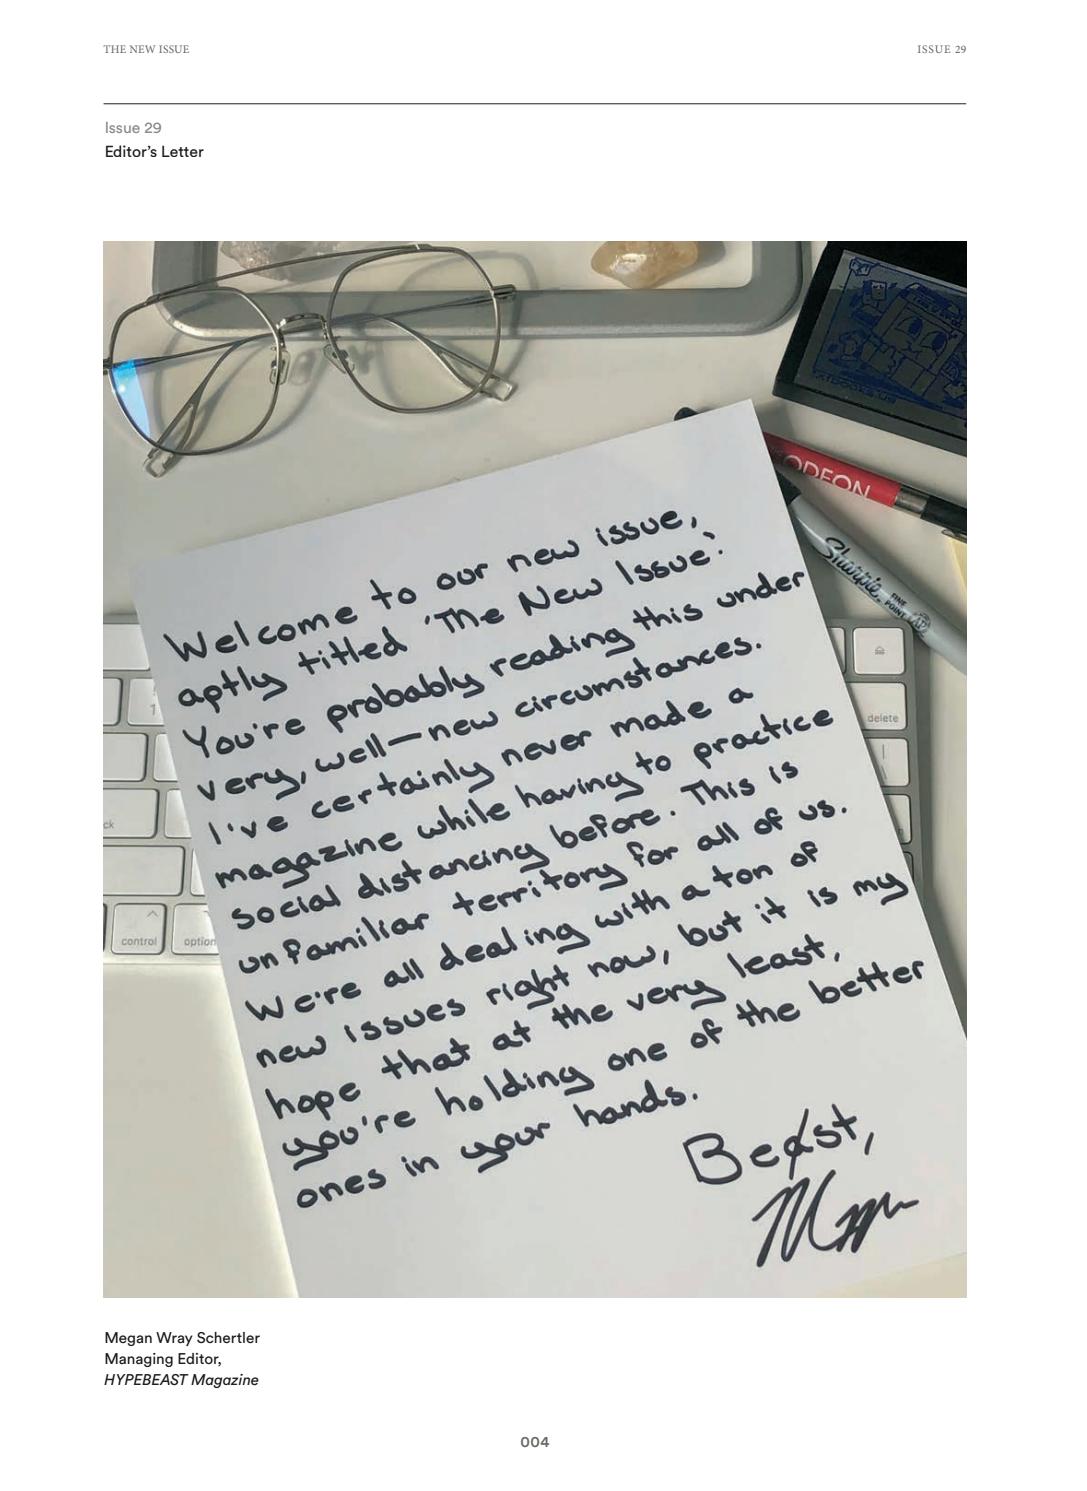 THE NEW ISSUE
ISSUE 29
Issue 29
Editor's Letter
ODEON
Sharpie.
FINE
POINT
Welcome to our new issue,
aptly titled 'The New Issue'.
You're probably reading this under
very, well—new circumstances.
I've certainly never made a
magazine while having to practice
social distancing before. This is
unfamiliar territory for all of us.
We're all dealing with a ton of
new issues right now, but it is my
hope that at the very least,
you're holding one of the better
ones in your hands.
Beast,
delete
control
option
ck
1
Megan Wray Schertler
Managing Editor,
HYPEBEAST Magazine
004